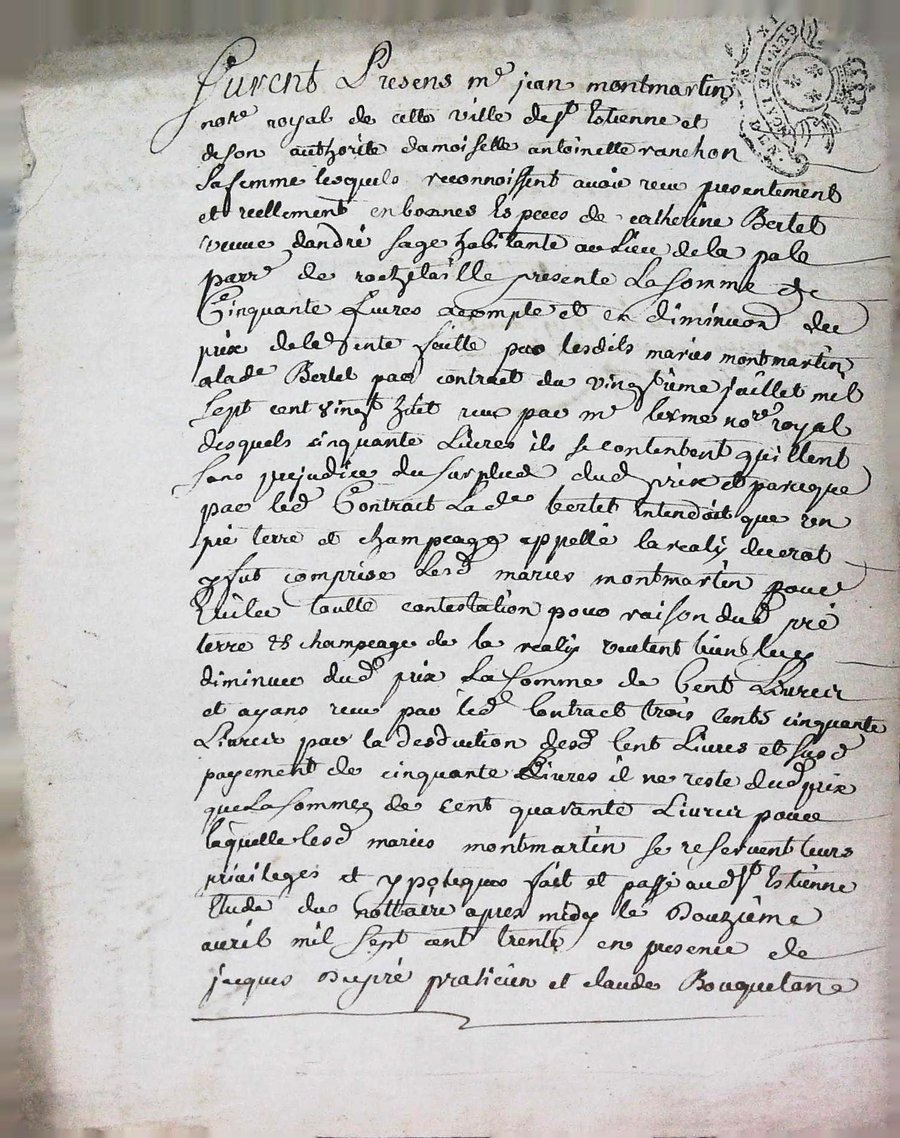 GEN. DE LYON
furent Presens me jean montmartin
notre royal de cette ville de st Estienne et
de son authorité damoiselle antoinette ranchon
sa femme lesquels reconnoissent avoir receu presentement
et reellement en bonnes Especes de catherine Bertet
veuve dandré sage habitante au Lieu de la pale
parre de rochetaillé presente La somme de
Cinquante Livres acompte et en diminuon du
prix de lad vente faitte par lesdits maries montmartin
a lade Bertet par contract du vingtième juillet mil
sept cent vingt huit receu par me notre royal
desquels cinquante Livres ils se contentent quittent
sans prejudice du surplus dud prix et parceque
par led Contract La de bertet intendoit que un
pré terre et champeage appellé la
y fut comprise Lesd maries montmartin pour
Eviter toutte contestation pour raison dud pré
terre et champeage de la veulent bien luy
diminuer dud prix La somme de Cent Livres
et ayans receu par led Contract trois Cents cinquante
Livres par la desduction desd Cent Livres et susd
payement de cinquante Livres il ne reste dud prix
que La somme de Cent quarante Livres pour
laquelle lesd maries montmartin se reservent leurs
privileges et ypoteques fait et passé aud st Estienne
Etude du nottaire apres midy le Douzième
avril mil sept cent trente en presence de
jacques Dupré praticien et claude Bouquetane